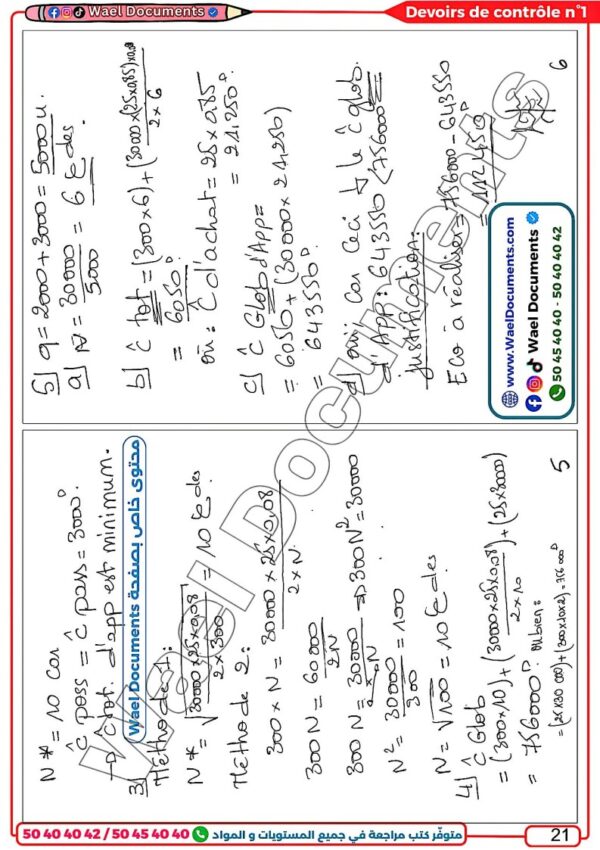 Wael Documents
Devoirs de contrôle n°1
N* = 10 car
ĉ pass = ĉ poss = 3000D
→ ĉ tot. d'app est minimum.
محتوى خاص بصفحة Wael Documents
3) Méthode 1:
N* = √(30000 x 25 x 0,08 / 2 x 300) = 10 Cdes.
Méthode 2:
300 x N = 30000 x 25 x 0,08 / 2 x N
300 N = 60000 / 2N
300 N = 30000 / N → 300 N² = 30000
N² = 30000 / 300 = 100
N = √100 = 10 Cdes
4) ĉ Glob
= (300 x 10) + (30000 x 25 x 0,08 / 2 x 10) + (25 x 30000)
= 756000D. ou bien:
= (25 x 30 000) + (300 x 10 x 2) = 756 000D
5
5) q = 2000 + 3000 = 5000 u.
a) N = 30000 / 5000 = 6 Cdes.
b) ĉ tot = (300 x 6) + (30000 x (25 x 0,85) x 0,08 / 2 x 6)
= 6050D
où: ĉ d'achat = 25 x 0,85
= 21,250D.
c) ĉ Glob d'App =
= 6050 + (30000 x 21,250)
= 643550D
d) oui car ceci ↓ le ĉ glob.
d'App: 643550 < 756000
justification:
Eco à réaliser = 756000 - 643550
= 112 450D
6
www.WaelDocuments.com
Wael Documents
50 45 40 40 - 50 40 40 42
Wael Documents
50 40 40 42 / 50 45 40 40 متوفّر كتب مراجعة في جميع المستويات و المواد
21